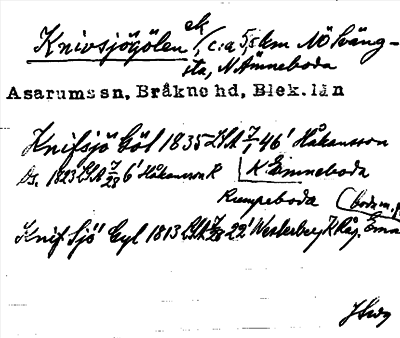 Knivsjögölen ek
(c:a 5,5 km NÖ Sväng-
sta, N Ämneboda
Asarums sn, Bråkne hd, Blek. län
Knifsjö Göl 1835 LSA 7/1 46' Håkansson
Ds. 1823 LSA 7/23 6' Håkansson R K Emneboda
Rumpeboda
Knif Sjö Gyl 1813 LSA 22' Westerberg